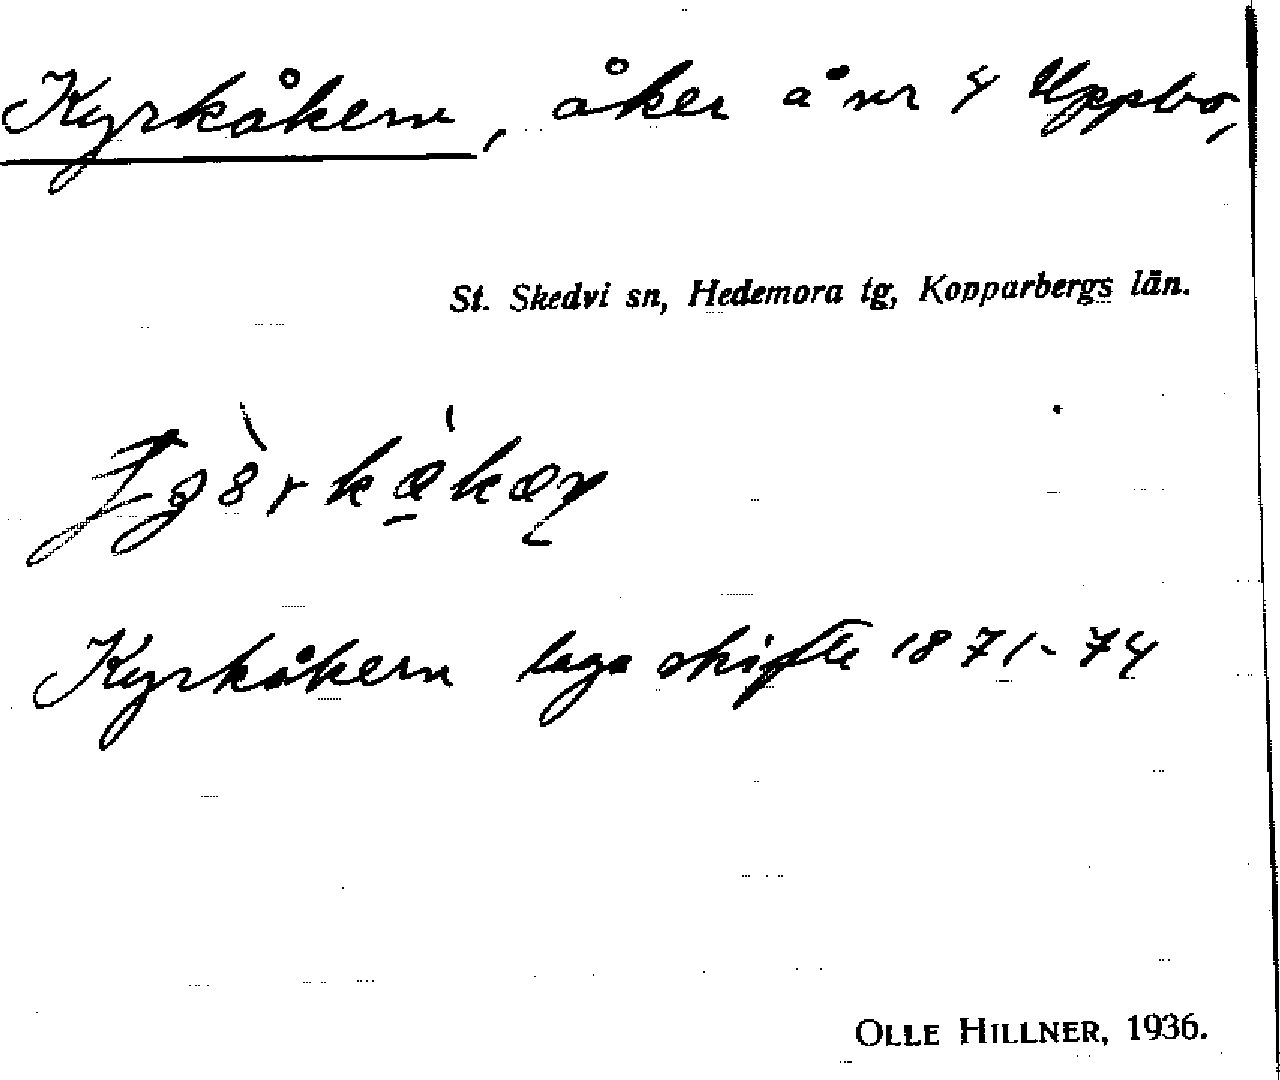 Kyrkåkern, åker å nr 4 Uppbo,
St. Skedvi sn, Hedemora tg, Kopparbergs län.
Kyrkåkern laga skifte 1871-74
OLLE HILLNER, 1936.